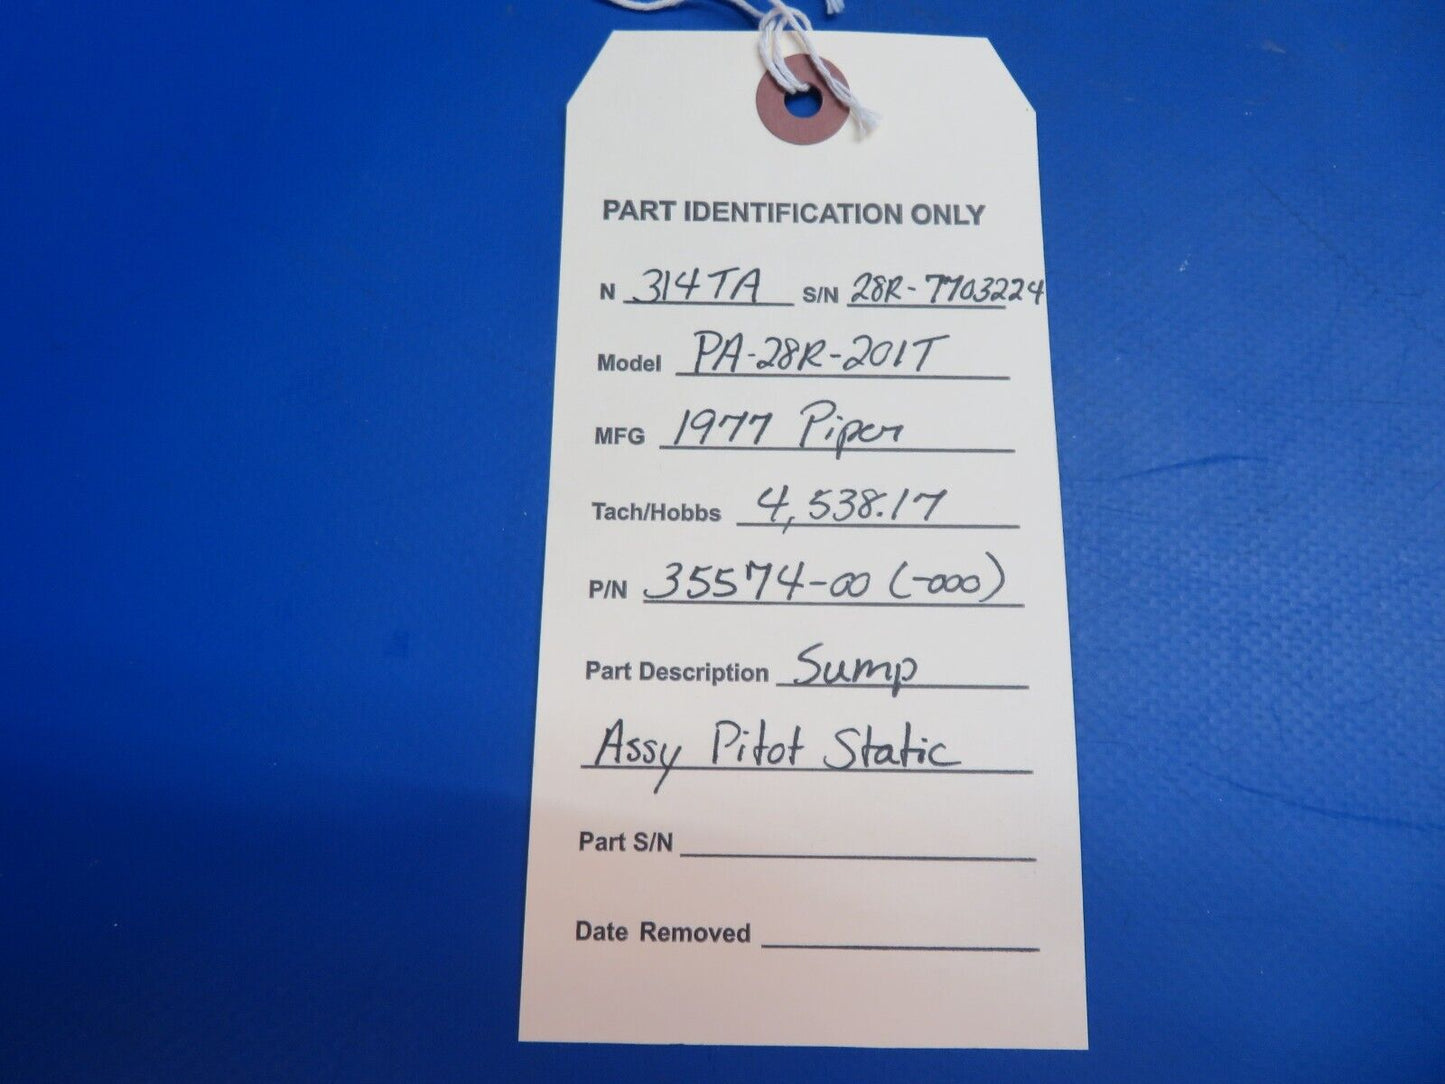 PART IDENTIFICATION ONLY
N 314TA S/N 28R-7703224
Model PA-28R-201T
MFG 1977 Piper
Tach/Hobbs 4,538.17
P/N 35574-00 (-000)
Part Description Sump
Assy Pitot Static
Part S/N
Date Removed